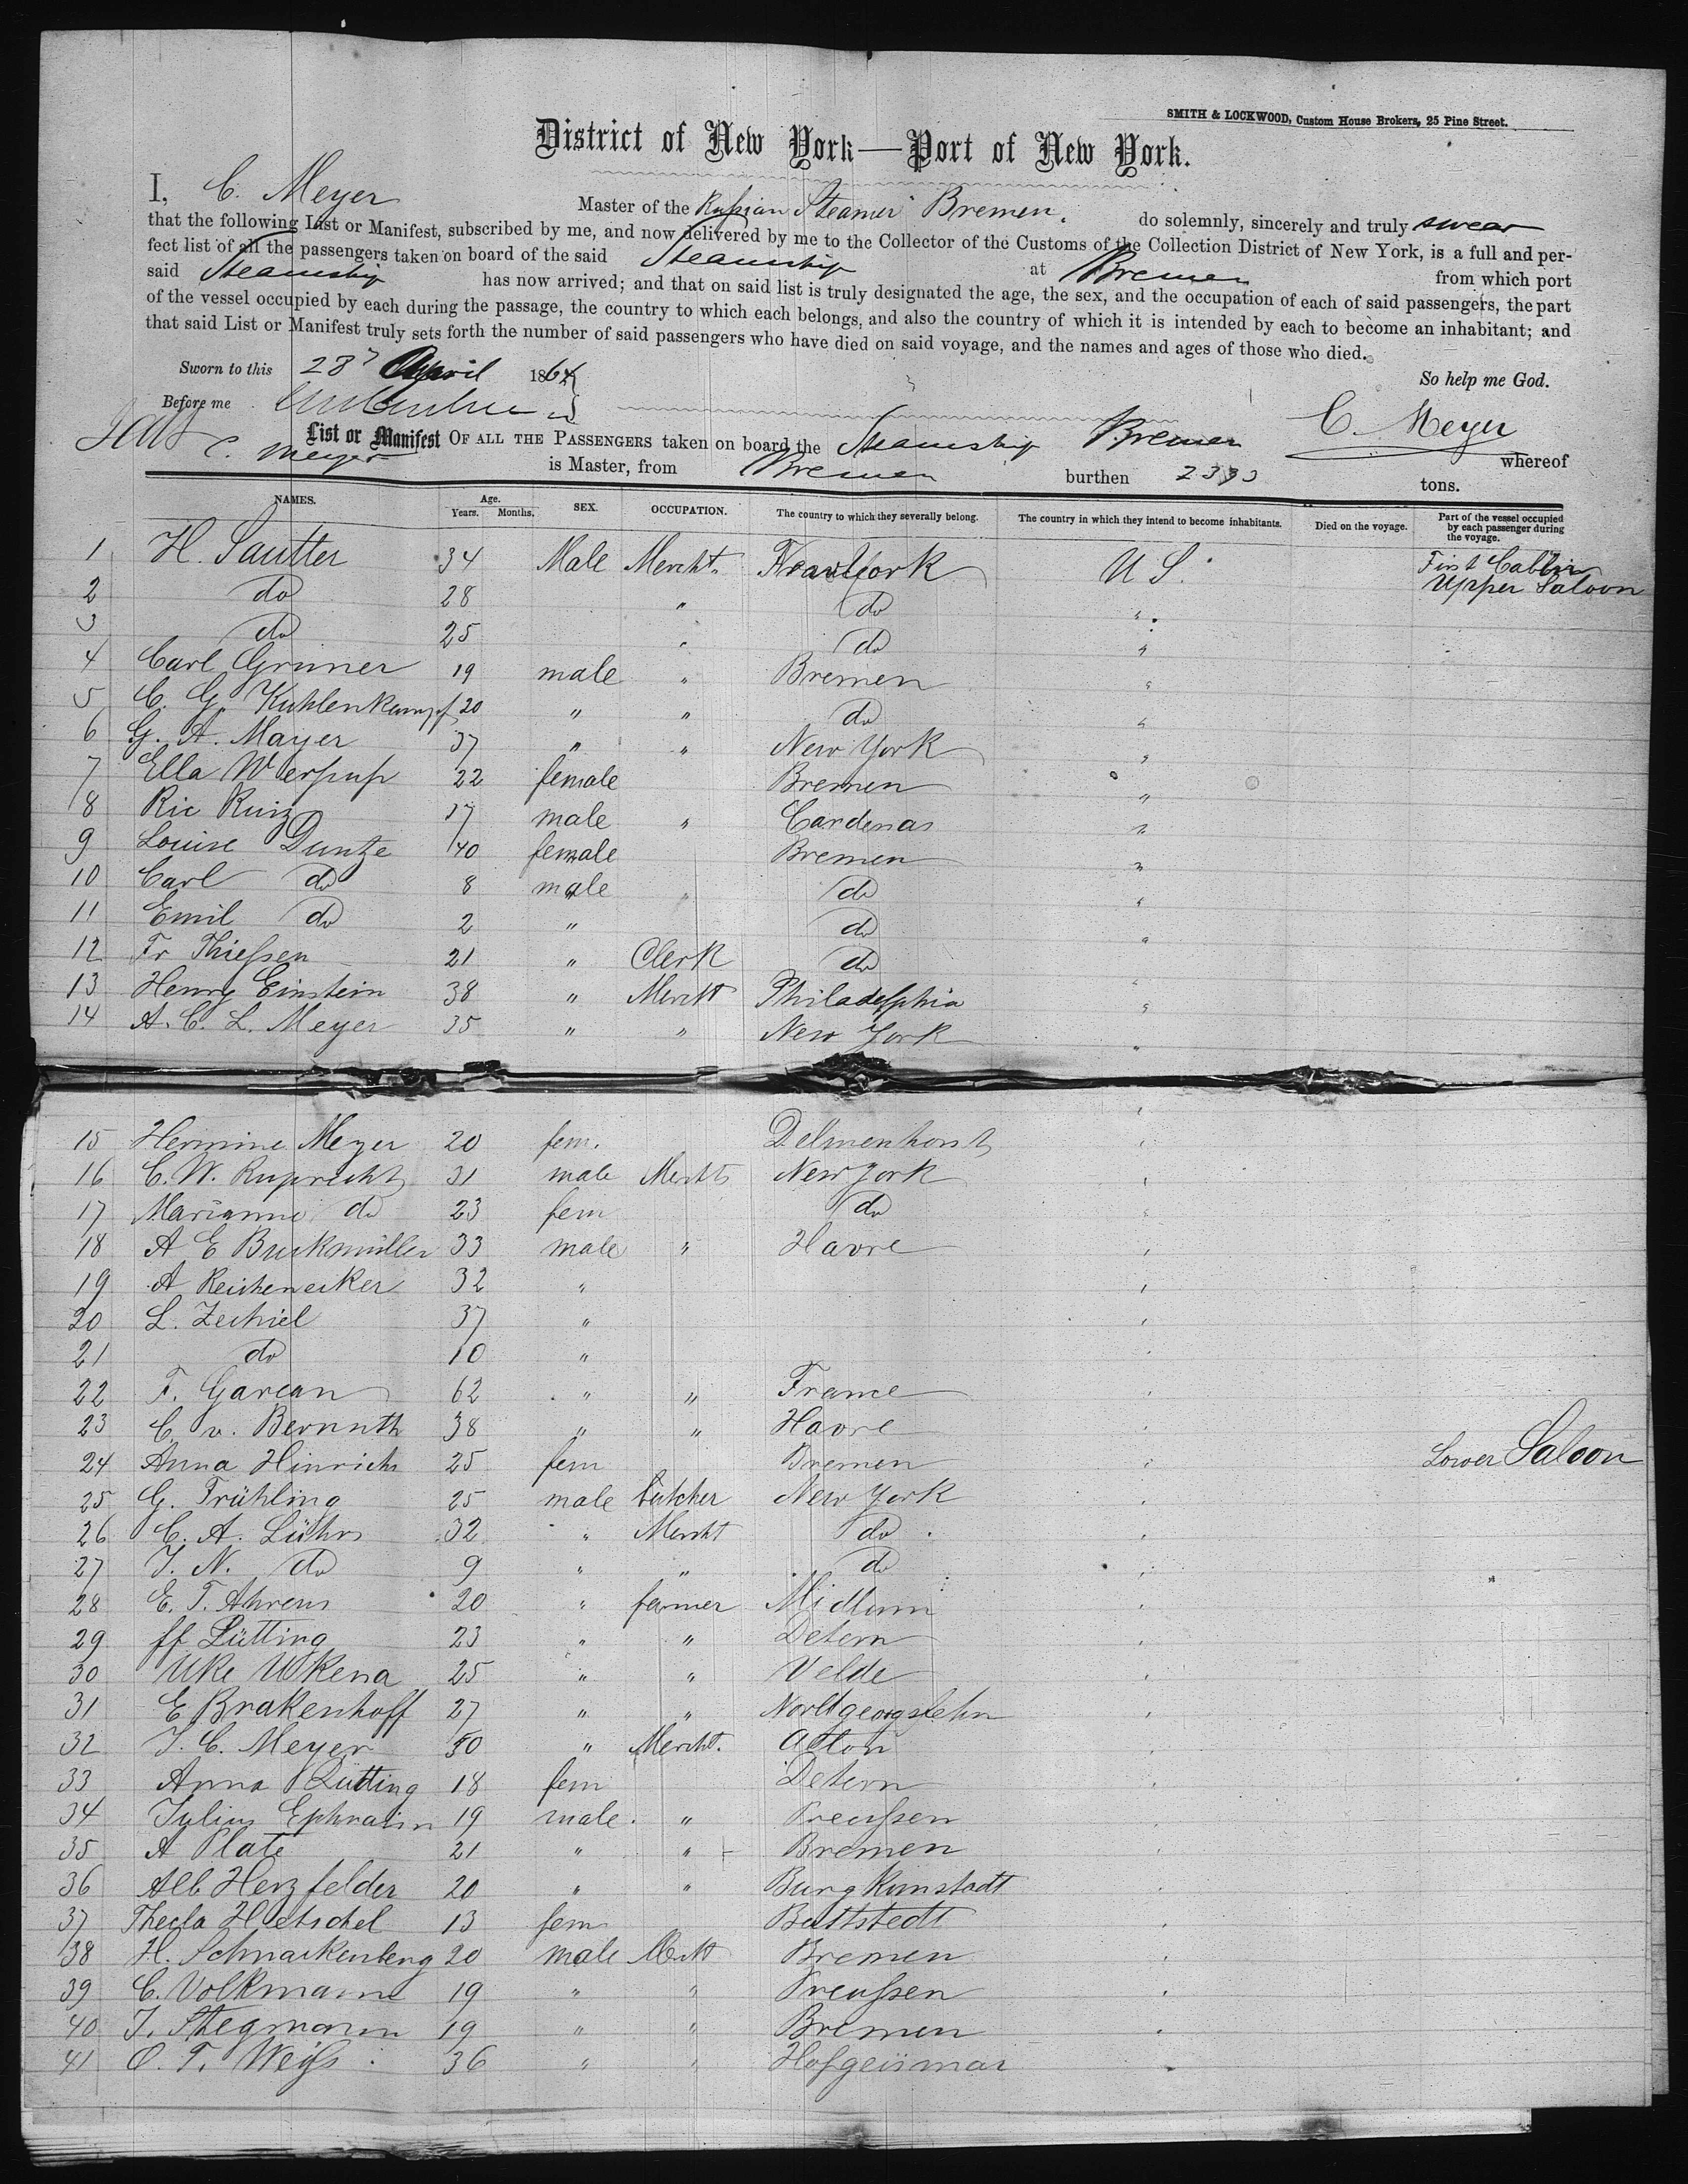 SMITH & LOCKWOOD, Custom House Brokers, 25 Pine Street.
District of New York—Port of New York.
I, C. Meyer Master of the Russian Steamer Bremen. do solemnly, sincerely and truly swear
that the following List or Manifest, subscribed by me, and now delivered by me to the Collector of the Customs of the Collection District of New York, is a full and per-
fect list of all the passengers taken on board of the said Steamship at Bremen from which port
said Steamship has now arrived; and that on said list is truly designated the age, the sex, and the occupation of each of said passengers, the part
of the vessel occupied by each during the passage, the country to which each belongs, and also the country of which it is intended by each to become an inhabitant; and
that said List or Manifest truly sets forth the number of said passengers who have died on said voyage, and the names and ages of those who died.
Sworn to this 28 April 1864 So help me God.
Before me C. Meyer
List or Manifest OF ALL THE PASSENGERS taken on board the Steamship Bremen whereof
C. Meyer is Master, from Bremen burthen tons.
NAMES. Age. Years. Months. SEX. OCCUPATION. The country to which they severally belong. The country in which they intend to become inhabitants. Died on the voyage. Part of the vessel occupied by each passenger during the voyage.
1 H. Sautter 34 Male Mercht. U S. First Cabin
2 do 28 " do " Upper Saloon
3 do 25 " do "
4 Carl Gruner 19 male " Bremen "
5 C. G. Kuhlenkampf 20 " " do "
6 G. A. Mayer 37 " " New York "
7 Ella 22 female Bremen "
8 Ric Ruiz 17 male " Cardenas "
9 Louise Duntze 40 female Bremen "
10 Carl do 8 male " do "
11 Emil do 2 " do "
12 Fr Thiessen 21 " Clerk do "
13 Henry Einstein 38 " Mercht Philadelphia "
14 A. C. L. Meyer 35 " " New York "
15 Hermine Meyer 20 fem. Delmenhorst "
16 C. W. Ruprecht 31 male Mercht New York "
17 Marianne do 23 fem do "
18 A E Buckmüller 33 male " Havre "
19 A Reichenecker 32 " "
20 L. Zechiel 37 " "
21 do 10 " "
22 F. Garcan 62 " " France "
23 C. v. Bernuth 38 " " Havre "
24 Anna Hinrichs 25 fem Bremen " Lower Saloon
25 G. Frühling 25 male butcher New York "
26 C. A. Lührs 32 " Mercht do "
27 J. N. do 9 " " do "
28 E. T. Ahrens 20 " farmer Midlum "
29 ff Lütting 23 " " Detern "
30 Uke Ukena 25 " " Velde "
31 E Brakenhoff 27 " " Nordgeorgsfehn "
32 J. C. Meyer 50 " Mercht. "
33 Anna Lütting 18 fem Detern "
34 Julius Ephraim 19 male " Preussen "
35 A Plate 21 " " Bremen
36 Alb Herzfelder 20 " " Burgkunstadt "
37 Thecla Hetschel 13 fem Buttstedt "
38 H. Schnackenberg 20 male Mercht Bremen "
39 C. Volkmann 19 " " Preussen "
40 J. Stegmann 19 " " Bremen "
41 O. T. Weiss 36 " " Hofgeismar "